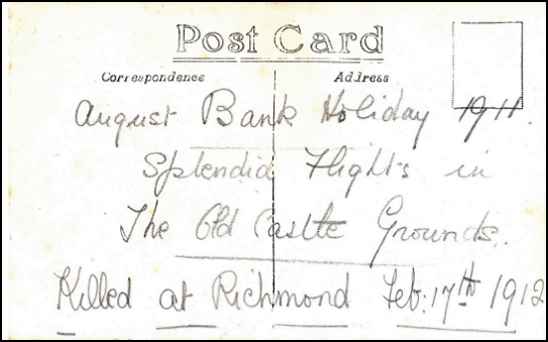 Post Card
Correspondence Address
August Bank Holiday 1911.
Splendid Flights in
The Old Castle Grounds.
Killed at Richmond Feb. 17th 1912